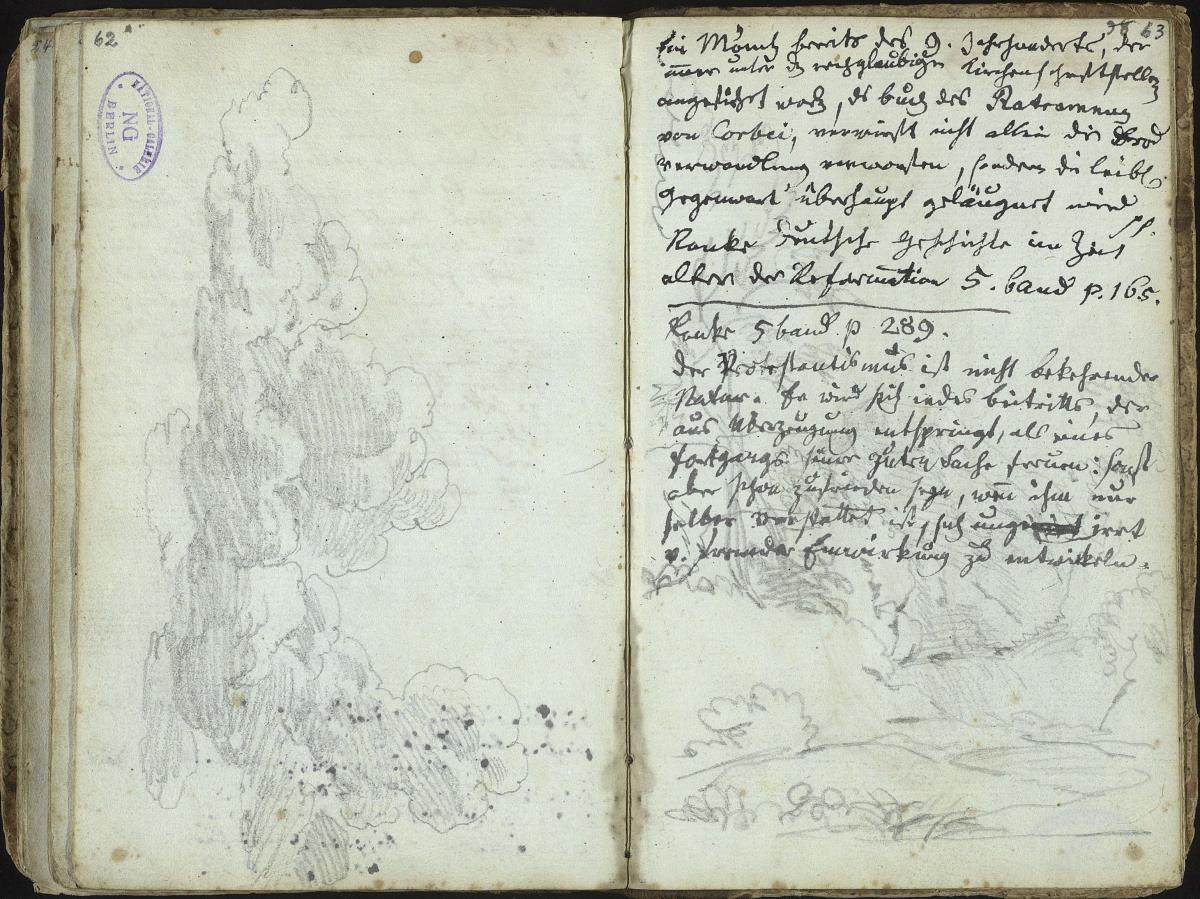 54
62
NATIONAL-GALERIE
NG
BERLIN
38 63
Ein Mönch bereits des 9. Jahrhunderts, der
immer unter d rechtglaubigen Kirchenschriftstellern
angeführt word, ds buch des Ratramnus
von Corbei, verwirft nicht allein die Brod
verwandlung verworfen, sondern die leibl.
Gegenwart überhaupt geläugnet wird
Ranke Deutsche Geschichte im Zeit
alter der Reformation 5. band p. 165.
Ranke 5 band p 289.
Der Protestantismus ist nicht bekehrender
Natur. Er wird sich indes beitritts, der
aus Überzeugung entspringt, als eines
fortgangs seiner guten Sache freuen: sonst
aber schon zufrieden seyn, wen ihm nur
selber verstattet ist, sich ungeirrt
v. fremder Einwirkung zu entwickeln.